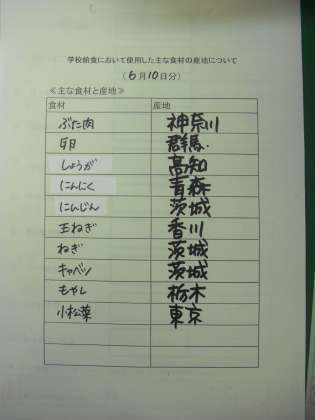 学校給食において使用した主な食材の産地について
(6月10日分)
≪主な食材と産地≫
食材 産地
ぶた肉 神奈川
卵 群馬
しょうが 高知
にんにく 青森
にんじん 茨城
玉ねぎ 香川
ねぎ 茨城
キャベツ 茨城
もやし 栃木
小松菜 東京